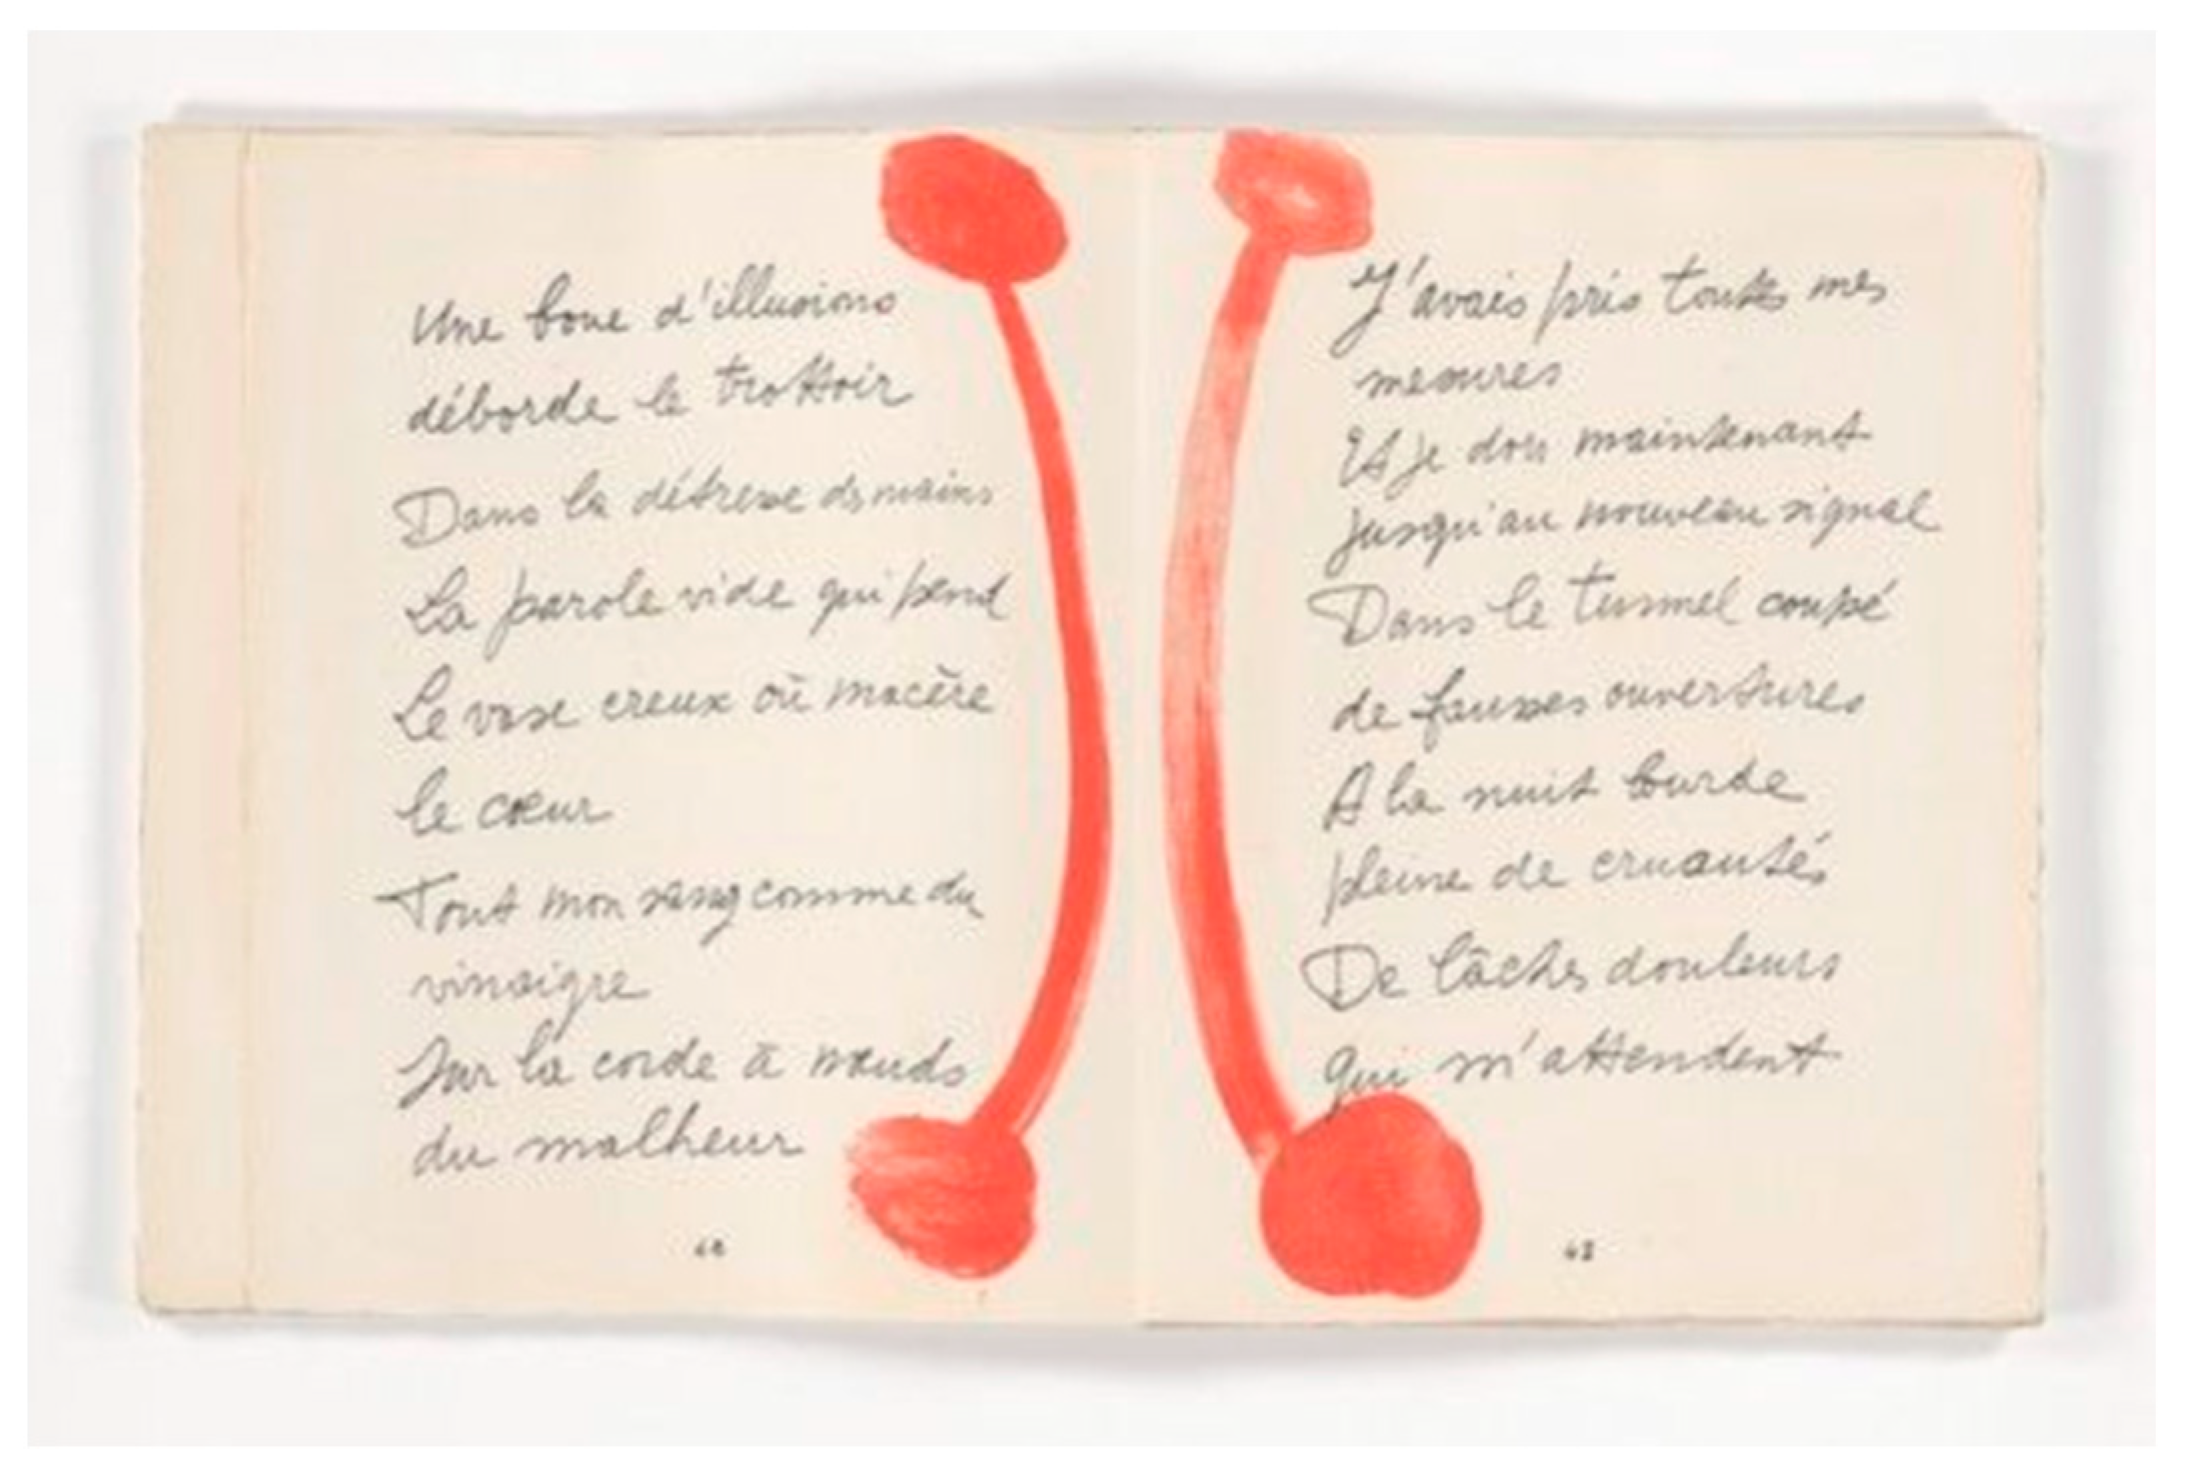 Une boue d'illusions
déborde le trottoir
Dans la détresse des mains
La parole vide qui pend
Le vase creux où macère
le cœur
Tout mon sang comme du
vinaigre
Sur la corde à nœuds
du malheur
J'avais pris toutes mes
mesures
Et je dors maintenant
jusqu'au nouveau signal
Dans le tunnel coupé
de fausses ouvertures
A la nuit lourde
pleine de cruautés
De lâches douleurs
qui m'attendent